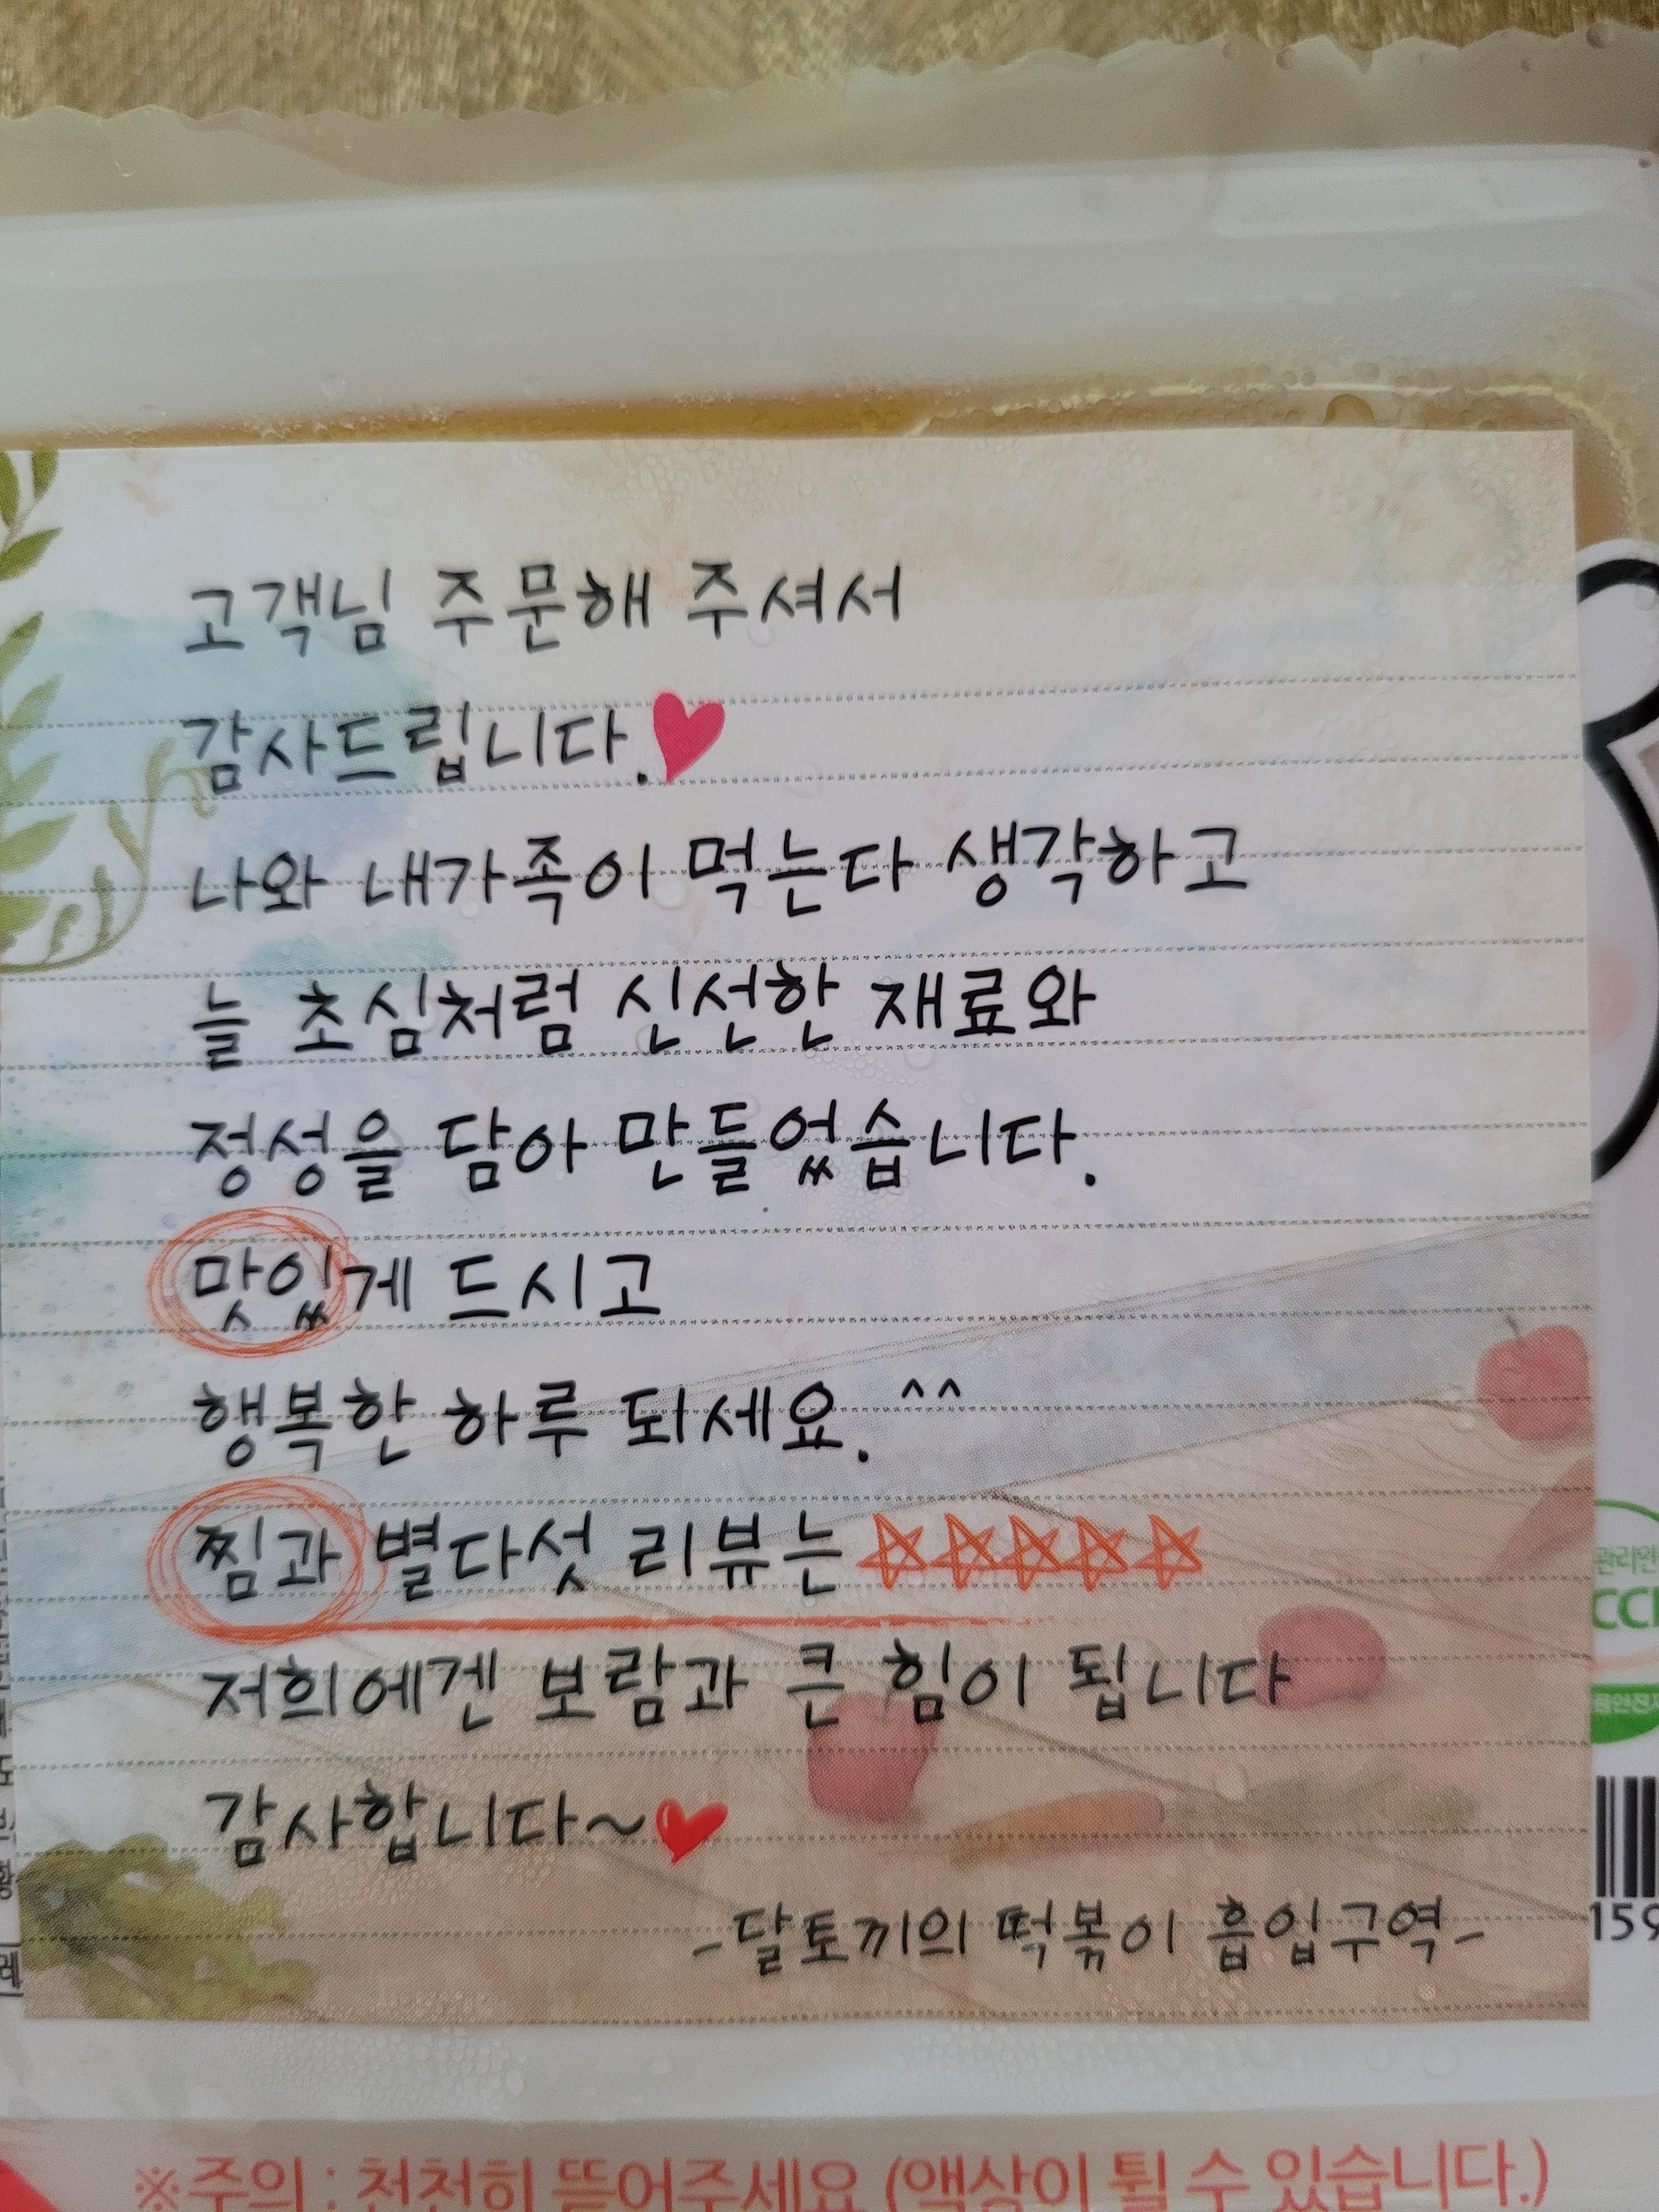 고객님 주문해 주셔서
감사드립니다.♥
나와 내가족이 먹는다 생각하고
늘 초심처럼 신선한 재료와
정성을 담아 만들었습니다.
맛있게 드시고
행복한 하루 되세요.^^
찜과 별다섯 리뷰는☆☆☆☆☆
저희에겐 보람과 큰 힘이 됩니다
감사합니다~♥
-달토끼의 떡볶이 흡입구역-
관리인
CCP
159
※주의 : 천천히 뜯어주세요 (액상이 튈 수 있습니다.)